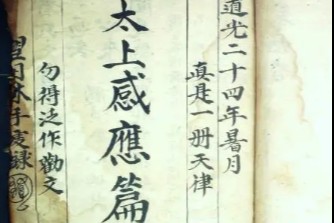 道光二十四年暑月
真是一册天津
太上感應篇
勿得泛作勸文